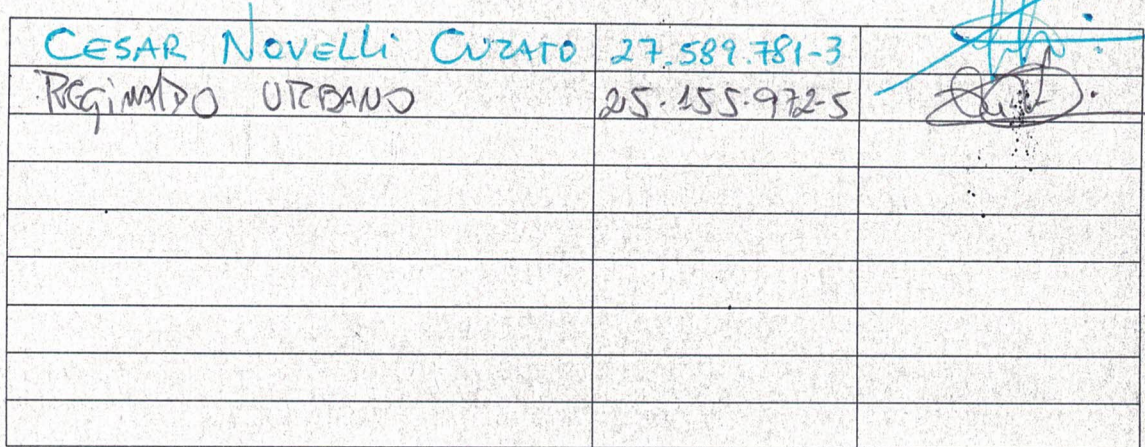 CESAR NOVELLI CUZATO 27.589.781-3
REGINALDO URBANO 25.155.972-5